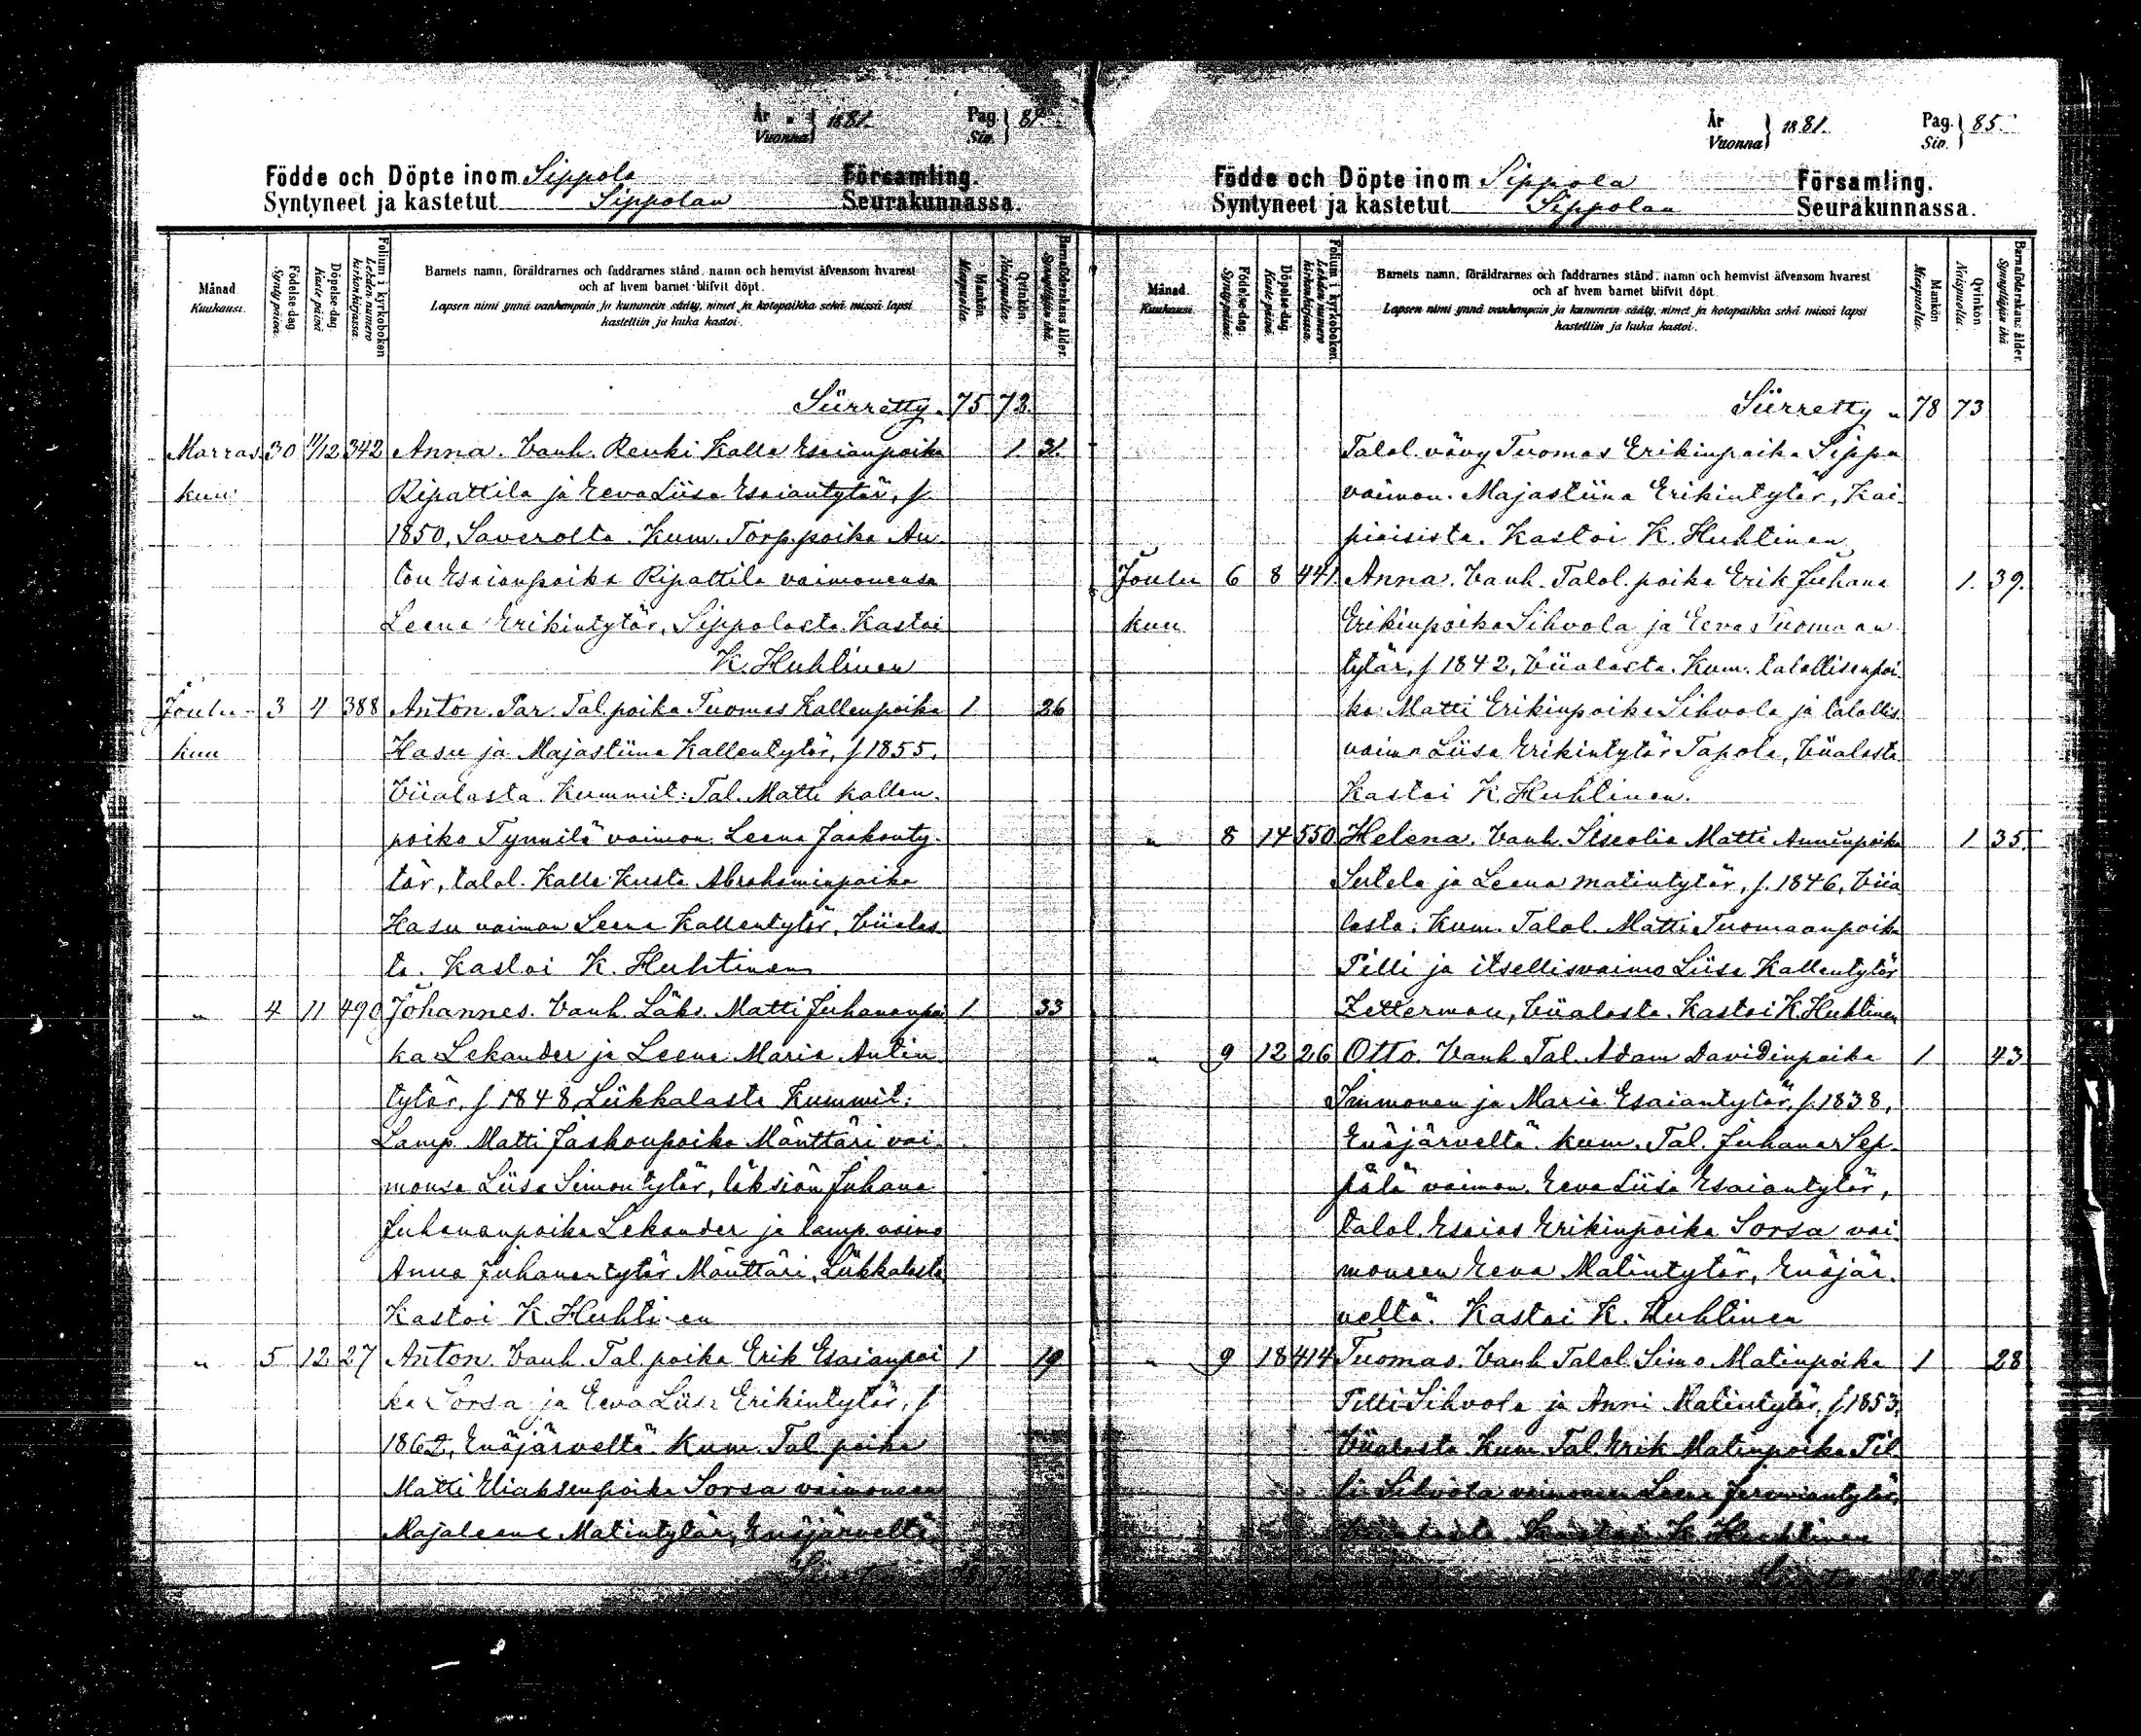 År Vuonna } 1881. Pag. Siv. } 84.
Födde och Döpte inom Sippola Församling.
Syntyneet ja kastetut Sippolan Seurakunnassa.
Månad Kuukausi. Födelse-dag. Syntypäivä. Döpelse-dag. Kaste päivä. Folium i kyrkoboken Lehden numero kirkonkirjassa. Barnets namn, föräldrarnes och faddrarnes stånd, namn och hemvist äfvensom hvarest Mankön. Miespuolia. Qvinkön. Naispuolia. Barnaföderskans ålder. Synnyttäjän ikä.
och af hvem barnet blifvit döpt.
Lapsen nimi ynnä vanhempain ja kummein sääty, nimet ja kotopaikka sekä missä lapsi
kastettiin ja kuka kastoi.
Siirretty 75 72
Marras 30 11/12 342 Anna. Vanh. Renki Kalle Esaianpoika 1 31.
kuu Ripattila ja Eeva Liisa Esaiantytär, f
1850, Saverolta. Kum. Torp. poika An
ton Esaianpoika Ripattila vaimonensa
Leena Erikintytär, Sippolasta. Kastoi
K. Huhtinen
Joulu 3 4 388 Anton. Par. Tal. poika Tuomas Kallenpoika 1 26
kuu Hasu ja Majastiina Kallentytär, f 1855.
Viialasta. Kummit: Tal. Matti Kallen
poika Tynnilä vaimon. Leena Jaakonty
tär, talol. Kalle Kusta Abrahaminpoika
Hasu vaimon Leena Kallentytär, Viialas
ta. Kastoi K. Huhtinen
" 4 11 490 Johannes. Vanh. Läks. Matti Juhananpoi 1 33
ka Lekander ja Leena Maria Antin
tytär, f 1848, Liikkalasta Kummit:
Lamp. Matti Jaakonpoika Mänttäri vai
monsa Liisa Simontytär, läksiän Juhana
Juhananpoika Lekander ja lamp. vaimo
Anna Juhanantytär Mänttäri, Liikkalasta
Kastoi K. Huhtinen
" 5 12 27 Anton. Vanh. Tal. poika Erik Esaianpoi 1 19
ka Sorsa ja Eeva Liisa Erikintytär, f
1862, Enäjärveltä. Kum. Tal. poika
Matti Eliaksenpoika Sorsa vaimoneen
Majaleena Matintytär, Enäjärveltä.
År Vuonna } 1881. Pag. Siv. } 85.
Födde och Döpte inom Sippola Församling.
Syntyneet ja kastetut Sippolan Seurakunnassa.
Månad Kuukausi. Födelse-dag. Syntypäivä. Döpelse-dag. Kaste päivä. Folium i kyrkoboken. Lehden numero kirkonkirjassa. Barnets namn, föräldrarnes och faddrarnes stånd, namn och hemvist äfvensom hvarest Mankön Miespuolia. Qvinkön Naispuolia. Barnaföderskans ålder. Synnyttäjän ikä
och af hvem barnet blifvit döpt.
Lapsen nimi ynnä vanhempain ja kummein sääty, nimet ja kotopaikka sekä missä lapsi
kastettiin ja kuka kastoi.
Siirretty " 78 73
Talol. vävy Tuomas Erikinpoika Sippa
vaimon. Majastiina Erikintytär, Kai
piaisista. Kastoi K. Huhtinen
Joulu 6 8 441. Anna. Vanh. Talol. poika Erik Juhana 1. 39.
kuu Erikinpoika Sihvola ja Eeva Tuomaan
tytär, f 1842, Viialasta. Kum. talollisenpoi
ka Matti Erikinpoika Sihvola ja talollis.
vaimo Liisa Erikintytär Tapola, Viialasta
Kastoi K. Huhtinen.
" 8 14 550. Helena. Vanh. Itseolia Matti Anninpoika 1 35.
Sutela ja Leena Matintytär, f. 1846, Viia
lasta. Kum. Talol. Matti Tuomaanpoika
Tilli ja itsellisvaimo Liisa Kallentytär
Zetterman, Viialasta. Kastoi K. Huhtinen
" 9 12 26 Otto. Vanh. Tal. Adam Davidinpoika 1 43
Immonen ja Maria Esaiantytär, f. 1838,
Enäjärveltä. Kum. Tal. Juhana Sep
pälä vaimon. Eeva Liisa Esaiantytär,
talol. Esaias Erikinpoika Sorsa vai
moneen Eeva Matintytär, Enäjär
veltä. Kastoi K. Huhtinen
" 9 18 414 Tuomas. Vanh. Talol. Simo Matinpoika 1 28
Tilli Sihvola ja Anni Matintytär, f 1853,
Viialasta. Kum. Tal. Erik Matinpoika Til
li Sihvola vaimoneen Leena Jeremiantytär,
Viialasta. Kastoi K. Huhtinen